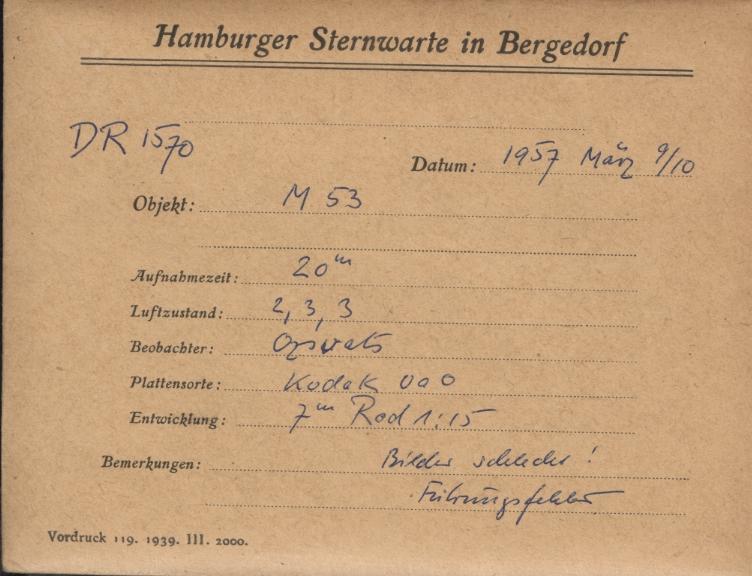 Hamburger Sternwarte in Bergedorf
DR 1570
Datum: 1957 März 9/10
Objekt: M 53
Aufnahmezeit: 20ᵐ
Luftzustand: 2, 3, 3
Beobachter:
Plattensorte: Kodak OaO
Entwicklung: 7ᵐ Rod 1:15
Bemerkungen: Bilder schlecht!
Führungsfehler
Vordruck 119. 1939. III. 2000.